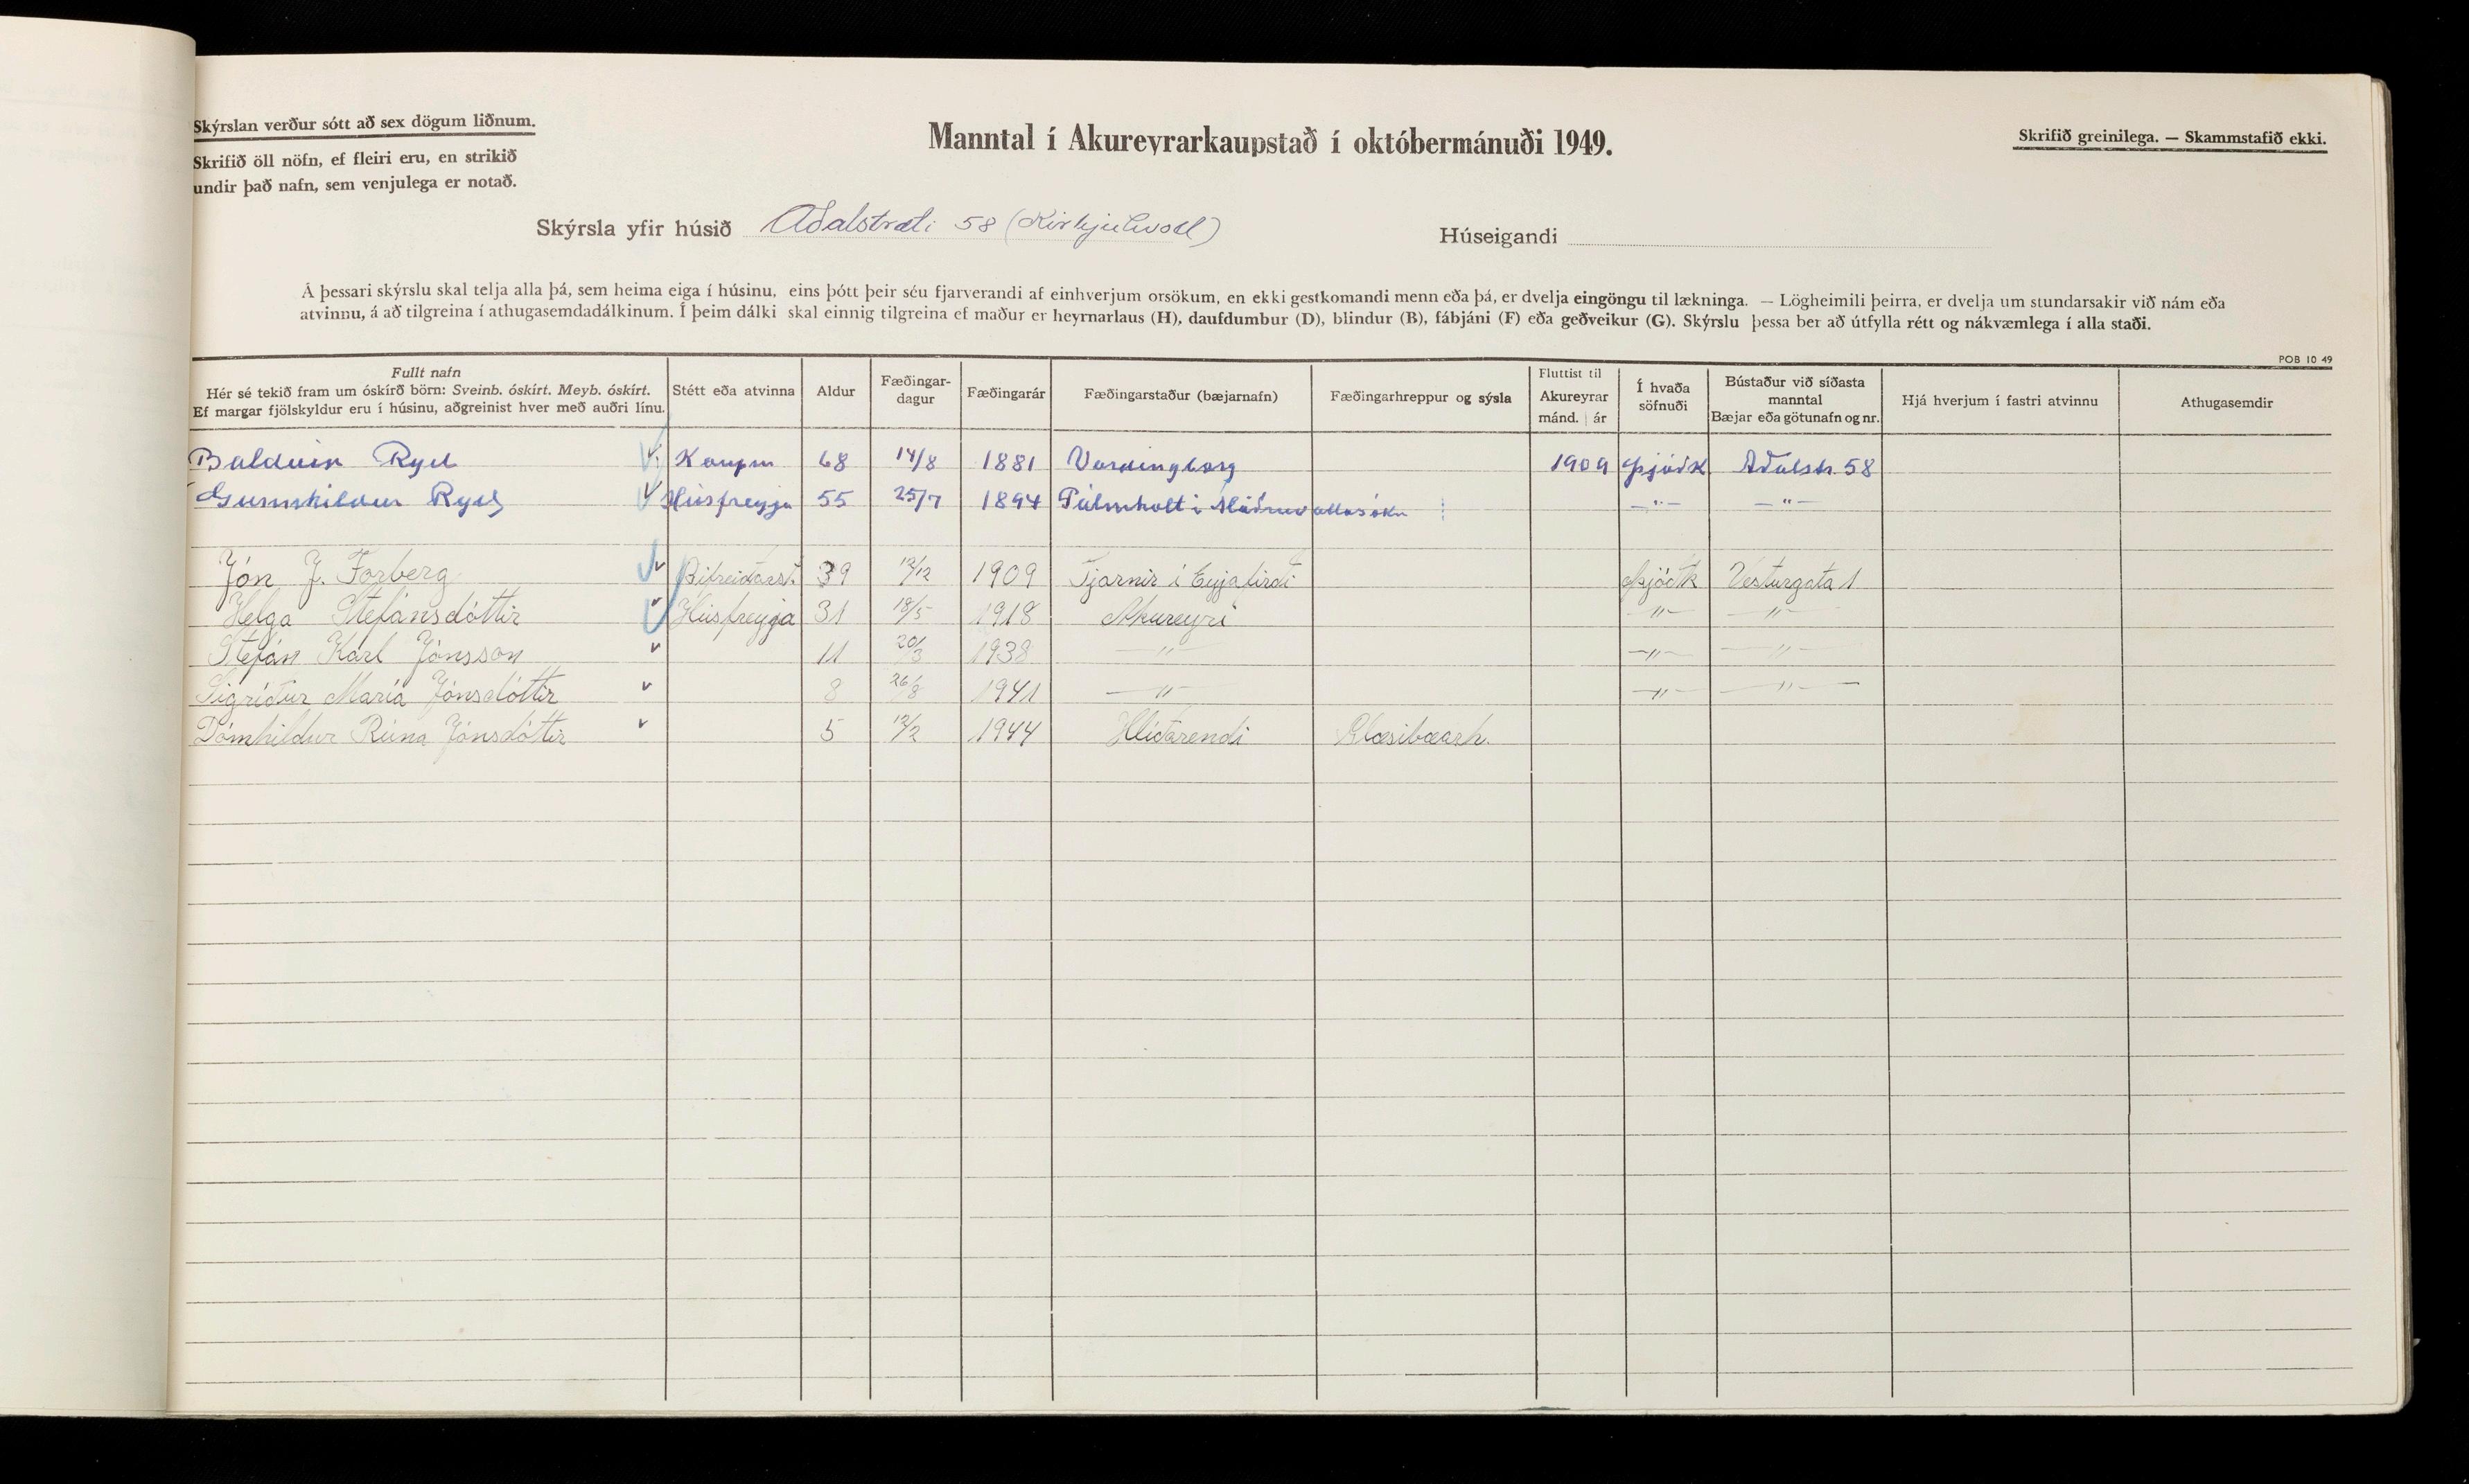 Skýrslan verður sótt að sex dögum liðnum.
Skrifið öll nöfn, ef fleiri eru, en strikið
undir það nafn, sem venjulega er notað.
Manntal í Akureyrarkaupstað í októbermánuði 1949.
Skrifið greinilega. — Skammstafið ekki.
Skýrsla yfir húsið Aðalstræti 58 (Kirkjuhvoll)
Húseigandi
Á þessari skýrslu skal telja alla þá, sem heima eiga í húsinu, eins þótt þeir séu fjarverandi af einhverjum orsökum, en ekki gestkomandi menn eða þá, er dvelja eingöngu til lækninga. — Lögheimili þeirra, er dvelja um stundarsakir við nám eða
atvinnu, á að tilgreina í athugasemdadálkinum. Í þeim dálki skal einnig tilgreina ef maður er heyrnarlaus (H), daufdumbur (D), blindur (B), fábjáni (F) eða geðveikur (G). Skýrslu þessa ber að útfylla rétt og nákvæmlega í alla staði.
POB 10 49
Fullt nafn
Hér sé tekið fram um óskírð börn: Sveinb. óskírt. Meyb. óskírt.
Ef margar fjölskyldur eru í húsinu, aðgreinist hver með auðri línu.
Stétt eða atvinna
Aldur
Fæðingar-
dagur
Fæðingarár
Fæðingarstaður (bæjarnafn)
Fæðingarhreppur og sýsla
Fluttist til
Akureyrar
mánd. | ár
Í hvaða
söfnuði
Bústaður við síðasta
manntal
Bæjar eða götunafn og nr.
Hjá hverjum í fastri atvinnu
Athugasemdir
Balduin Ryel Kaupm 68 14/8 1881 Vordingborg 1909 Þjóðk Aðalstr. 58
Gunnhildur Ryel Húsfreyja 55 25/7 1894 Pálmholt i Möðruvallasókn —"— —"—
Jón J. Forberg Bifreiðarst. 39 12/12 1909 Tjarnir í Eyjafirði Þjóðk Vesturgata 1
Helga Stefánsdóttir Húsfreyja 31 18/5 1918 Akureyri —"— —"—
Stefán Karl Jónsson 11 20/3 1938 —"— —"— —"—
Sigríður María Jónsdóttir 8 26/8 1941 —"— —"— —"—
Dómhildur Rúna Jónsdóttir 5 12/2 1944 Hlíðarendi Glæsibæarh.